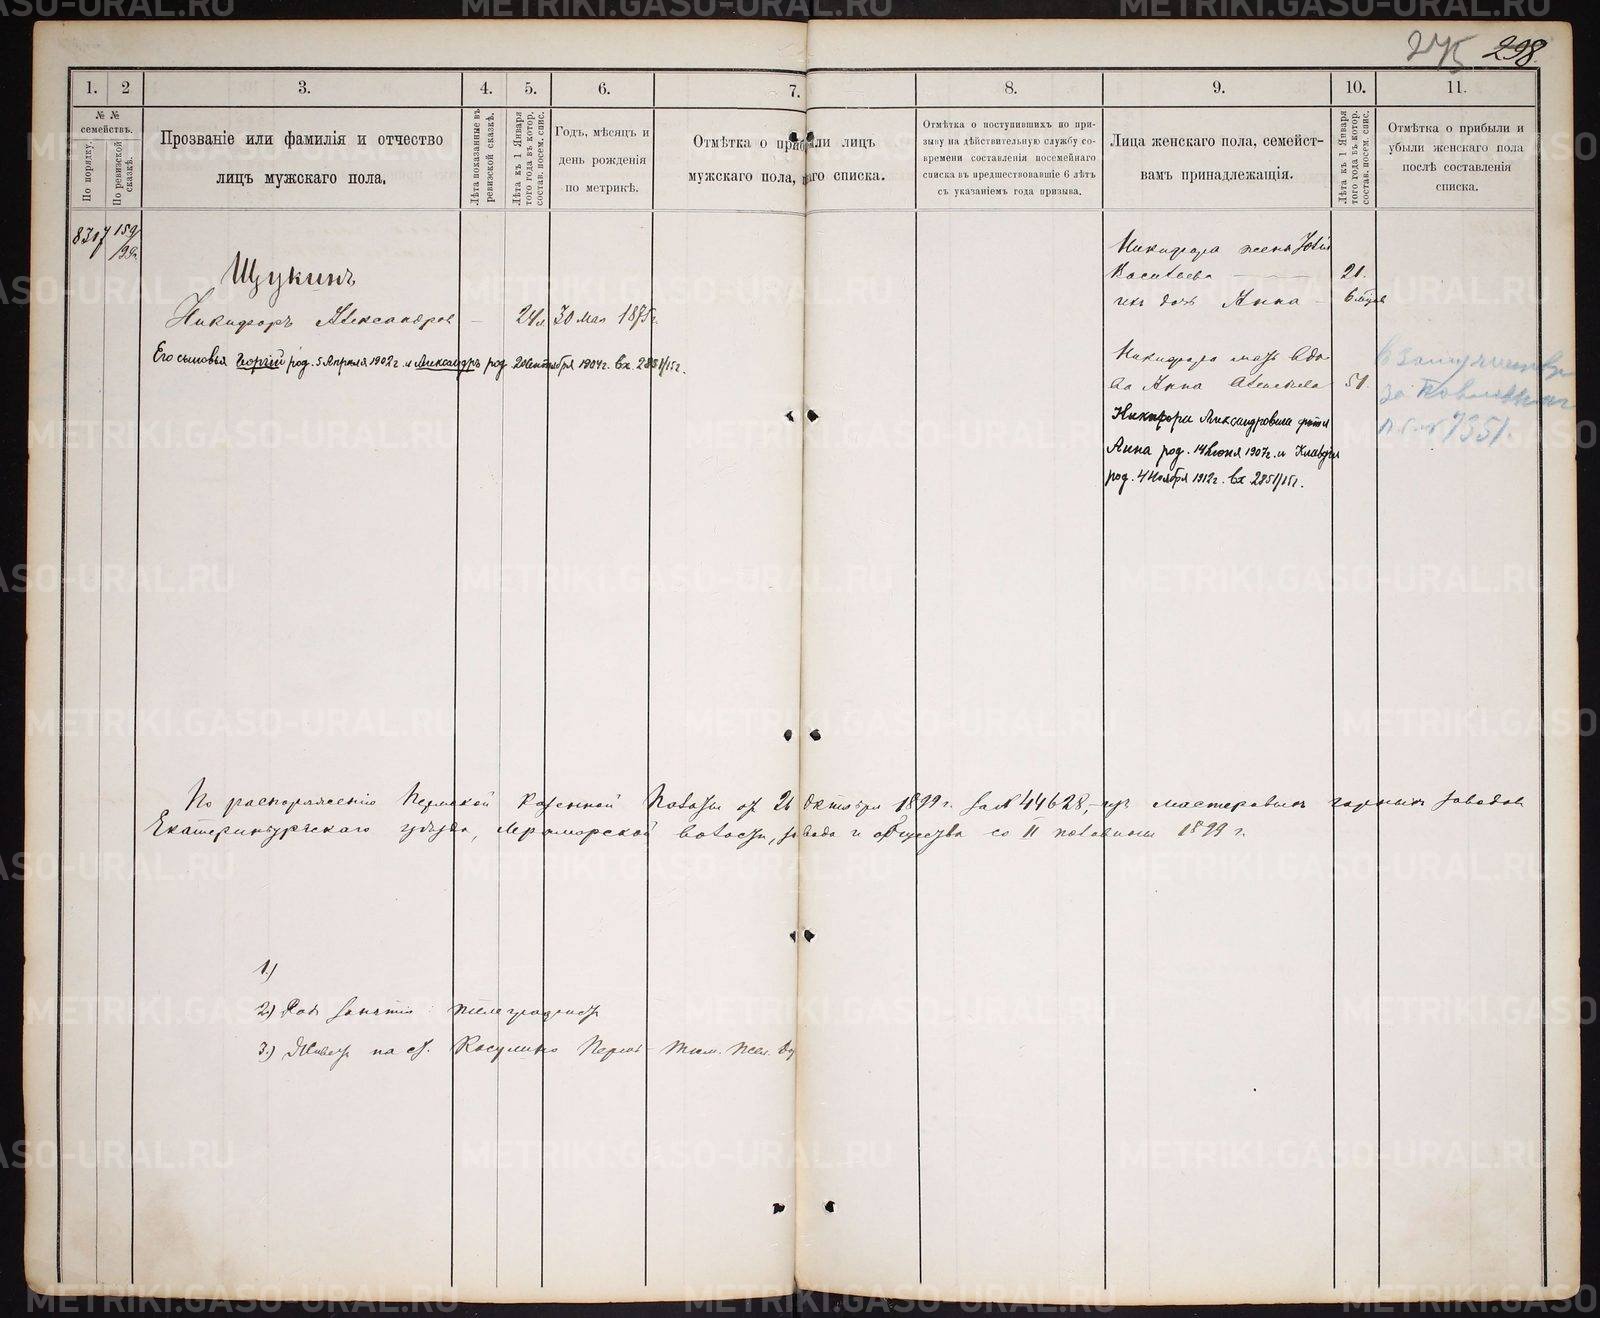 275 298.
1. 2 3. 4. 5. 6. 7. 8. 9. 10. 11.
№ №
семействъ.
По порядку.
По ревизской сказкѣ.
Прозваніе или фамилія и отчество
лицъ мужскаго пола.
Лѣта показанные въ
ревизской сказкѣ.
Лѣта къ 1 Января
того года въ котор.
состав. посем. спис.
Годъ, мѣсяцъ и
день рожденія
по метрикѣ.
Отмѣтка о прибыли лицъ
мужскаго пола, списка.
Отмѣтка о поступившихъ по при-
зыву на дѣйствительную службу со-
времени составленія посемейнаго
списка въ предшествовавшіе 6 лѣтъ
съ указаніемъ года призыва.
Лица женскаго пола, семейст-
вамъ принадлежащія.
Лѣта къ 1 Января
того года въ котор.
состав. посем. спис.
Отмѣтка о прибыли и
убыли женскаго пола
послѣ составленія
списка.
Щукинъ
Никифоръ Александров — 24 л. 30 мая 1875 г.
Его сыновья Георгій род. 5 Апреля 1902 г. и Александръ род. 1904 г. вх. 2851/15 г.
Никифора жена
Васильева — 21.
ихъ дочь Анна —
Никифора мать вдо-
ва Анна 51.
Никифора Александровича дѣти
Анна род. 14 Июня 1907 г. и Клавдія
род. 4 Ноября 1912 г. вх. 2851/15 г.
въ замужествѣ
за
7351.
По распоряженію Пермской Казенной Палаты от 26 Октября 1899 г. за № 44628, — из мастеровых горных заводов
Екатеринбургскаго уѣзда, Мраморской волости, завода и общества со II половины 1899 г.
1.)
2.) Род занятій: телеграфистъ
3.) Живетъ на ст. Косулино Перм- Тюм. жел. до